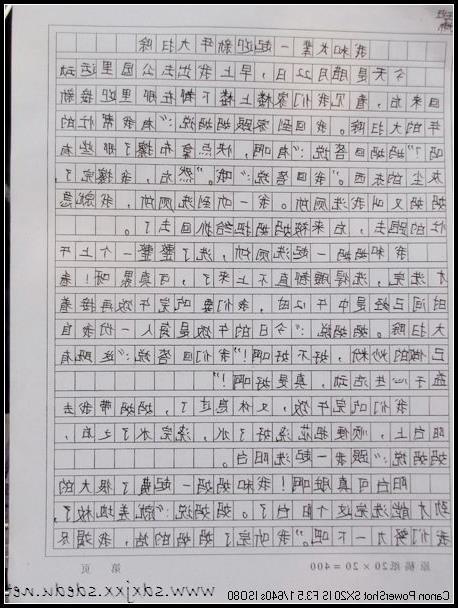 我和大家一起迎新年大扫除
今天是腊月22日，早上我出去公园里运动
回来后，看见我们家楼上楼下都在那里迎接新
年的大扫除。我回到家跟妈妈说：“有我帮忙的
吗？”妈妈回答说：“有啊，快点拿布擦了那些有
灰尘的东西。”我回答说：“哦。”然后，我擦完了，
妈妈又叫我洗厕所。我一听到洗厕所，我就急
忙的跑走，后来被妈妈给抓回去了。
我和妈妈一起洗厕所，洗了整整一个上午
才洗完，洗得腰都直不上来了，可真累呀！看
时间已经是中午12时，我们要吃完午饭再接着
大扫除。妈妈说：“今日的午饭是每人一份我自
己做的炒粉，好不好啊！”我们回答说：“这既有
益于心共活动，真是好啊！”
我们吃完午饭，又休息过了，妈妈带我去
阳台上，顺便把花浇好了水，浇完水了之后，
妈妈说：“跟我一起洗阳台。
阳台可真脏啊！我和妈妈一起费了很大的
劲才能洗完这个阳台了。妈妈说：“就差地板了，
我们努力一下吧。”我听完了妈妈的话，我竭尽
原稿纸20×20=400 第 页
Canon PowerShot SX201IS F3.5 1/640s ISO80
www.sdxjxx.sdedu.net